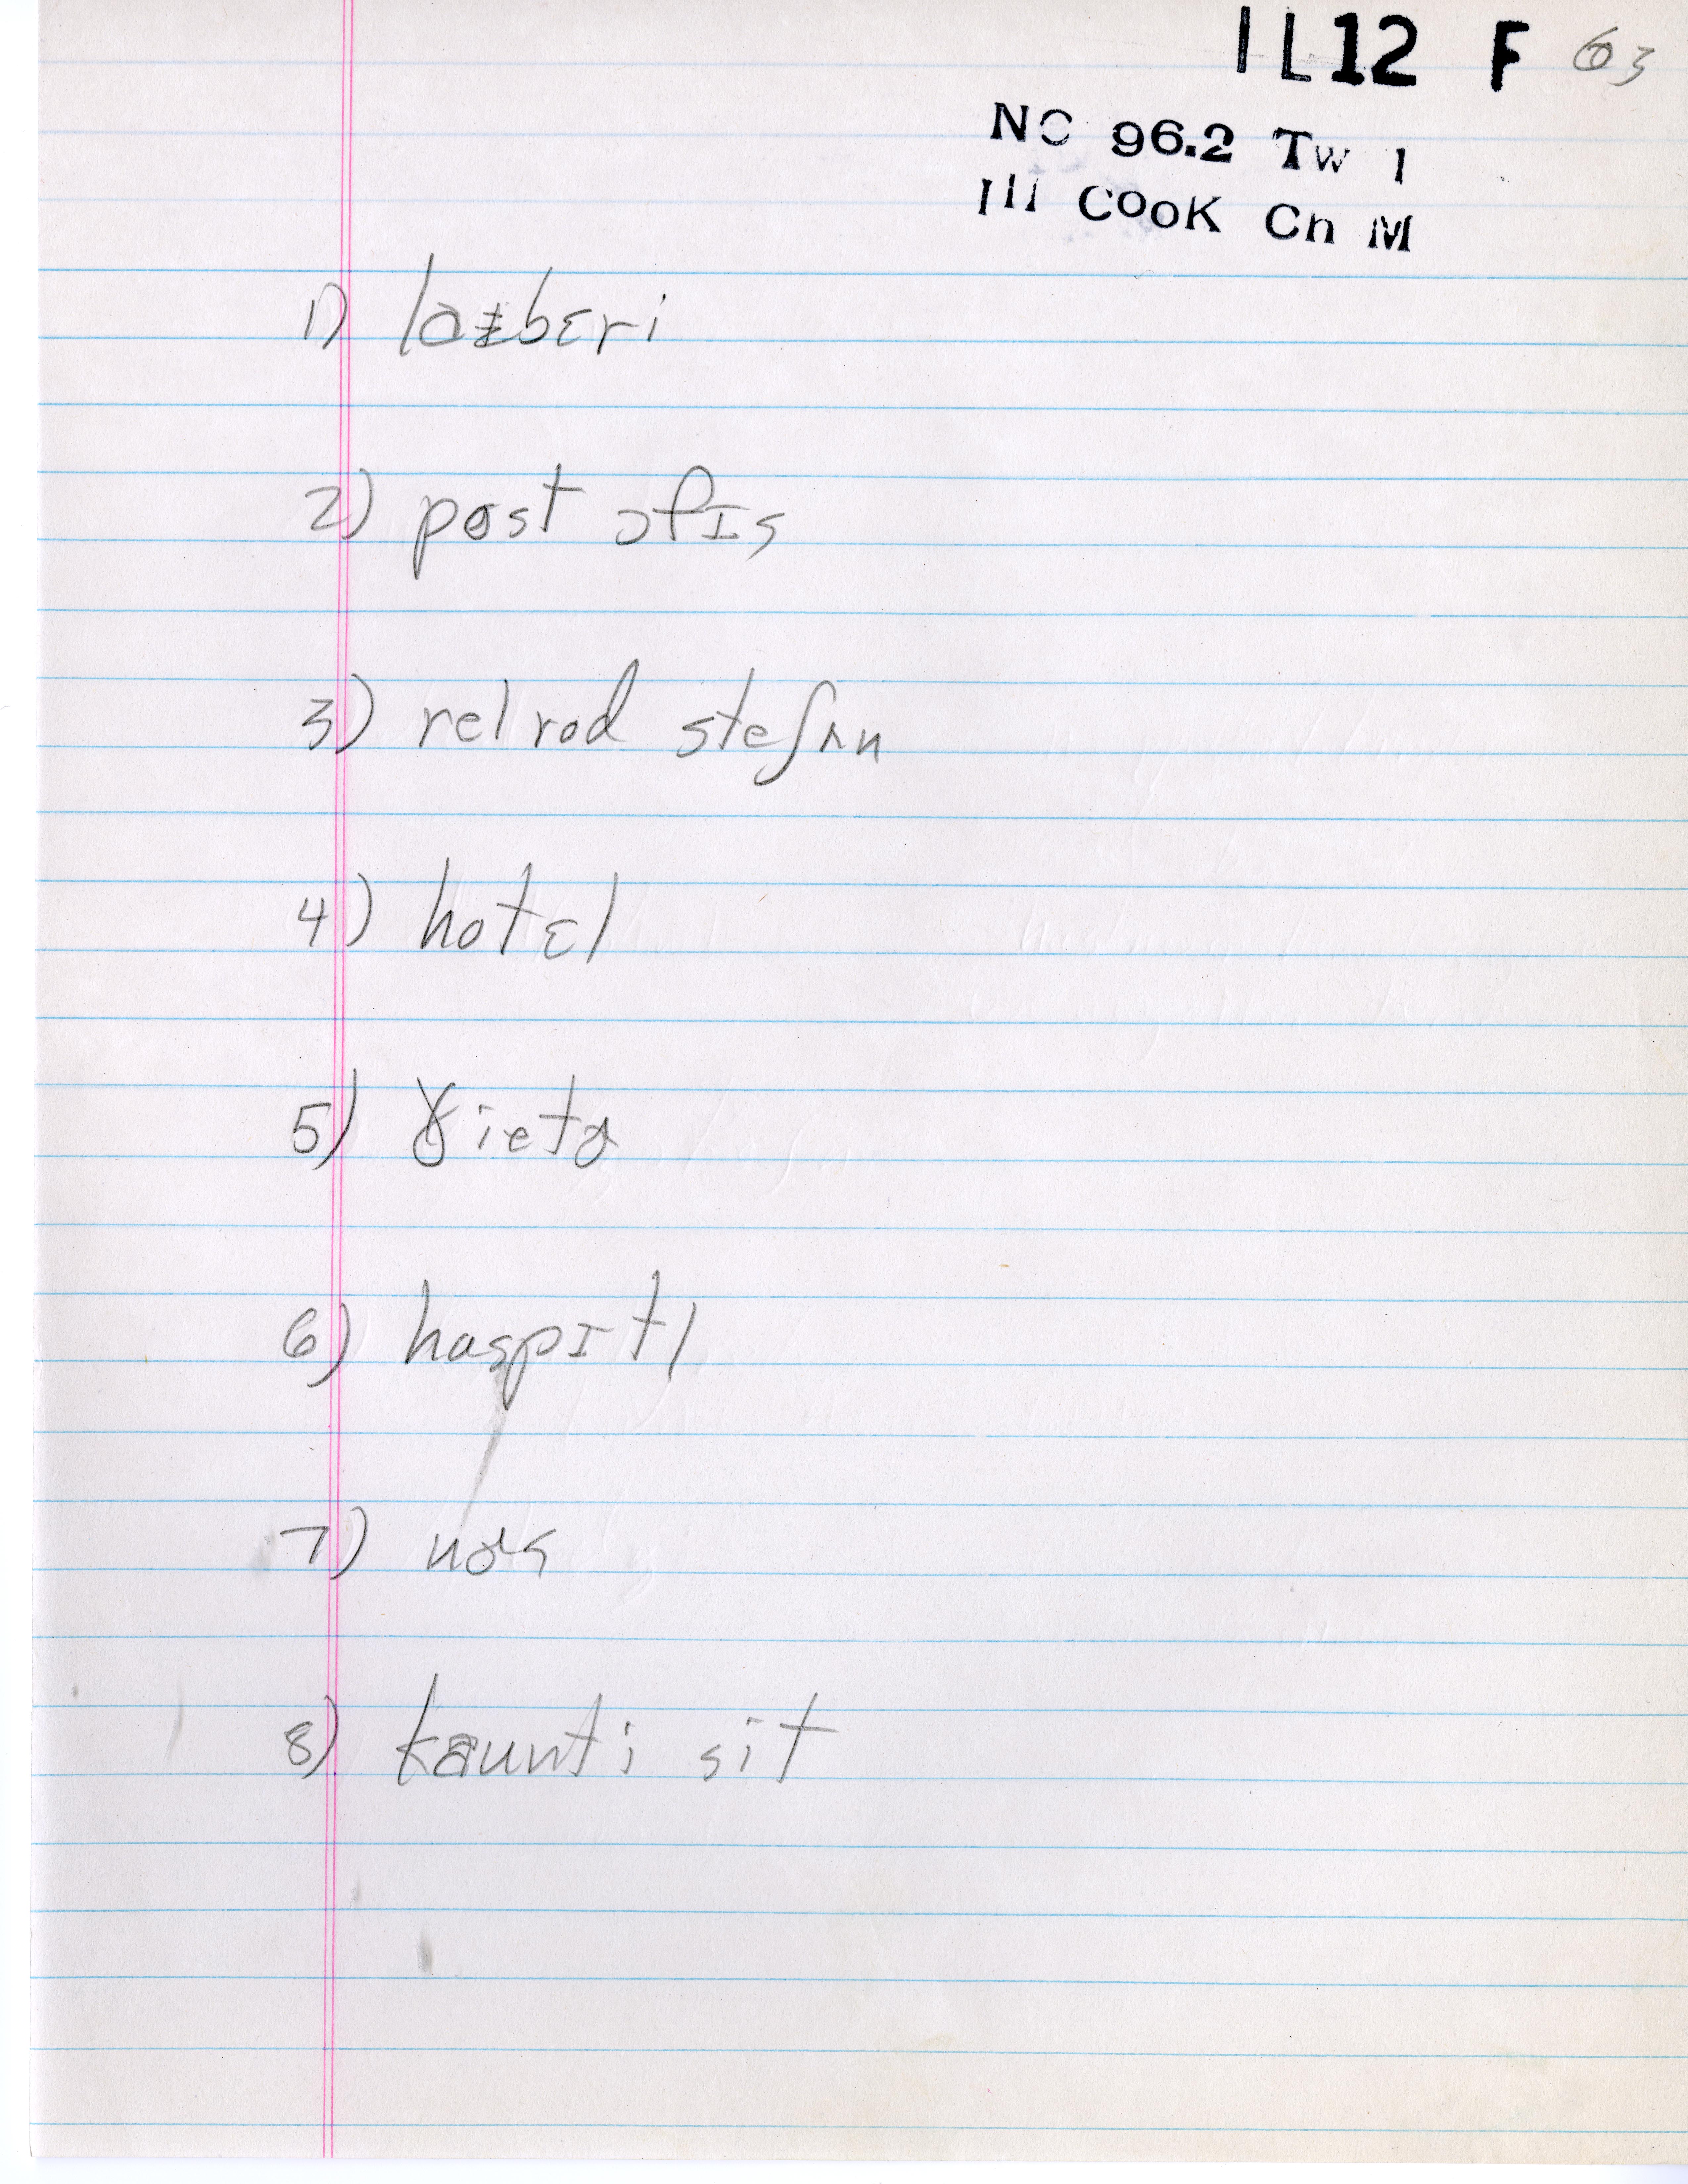 IL12 F 63
NC 96.2 Tw 1
Ill COOK Ch M
1) laɪbɛri
2) post ɔfɪs
3) relrod steʃʌn
4) hotɛl
5) θietɚ
6) haspɪtl
7) nɚs
8) kaunti sit